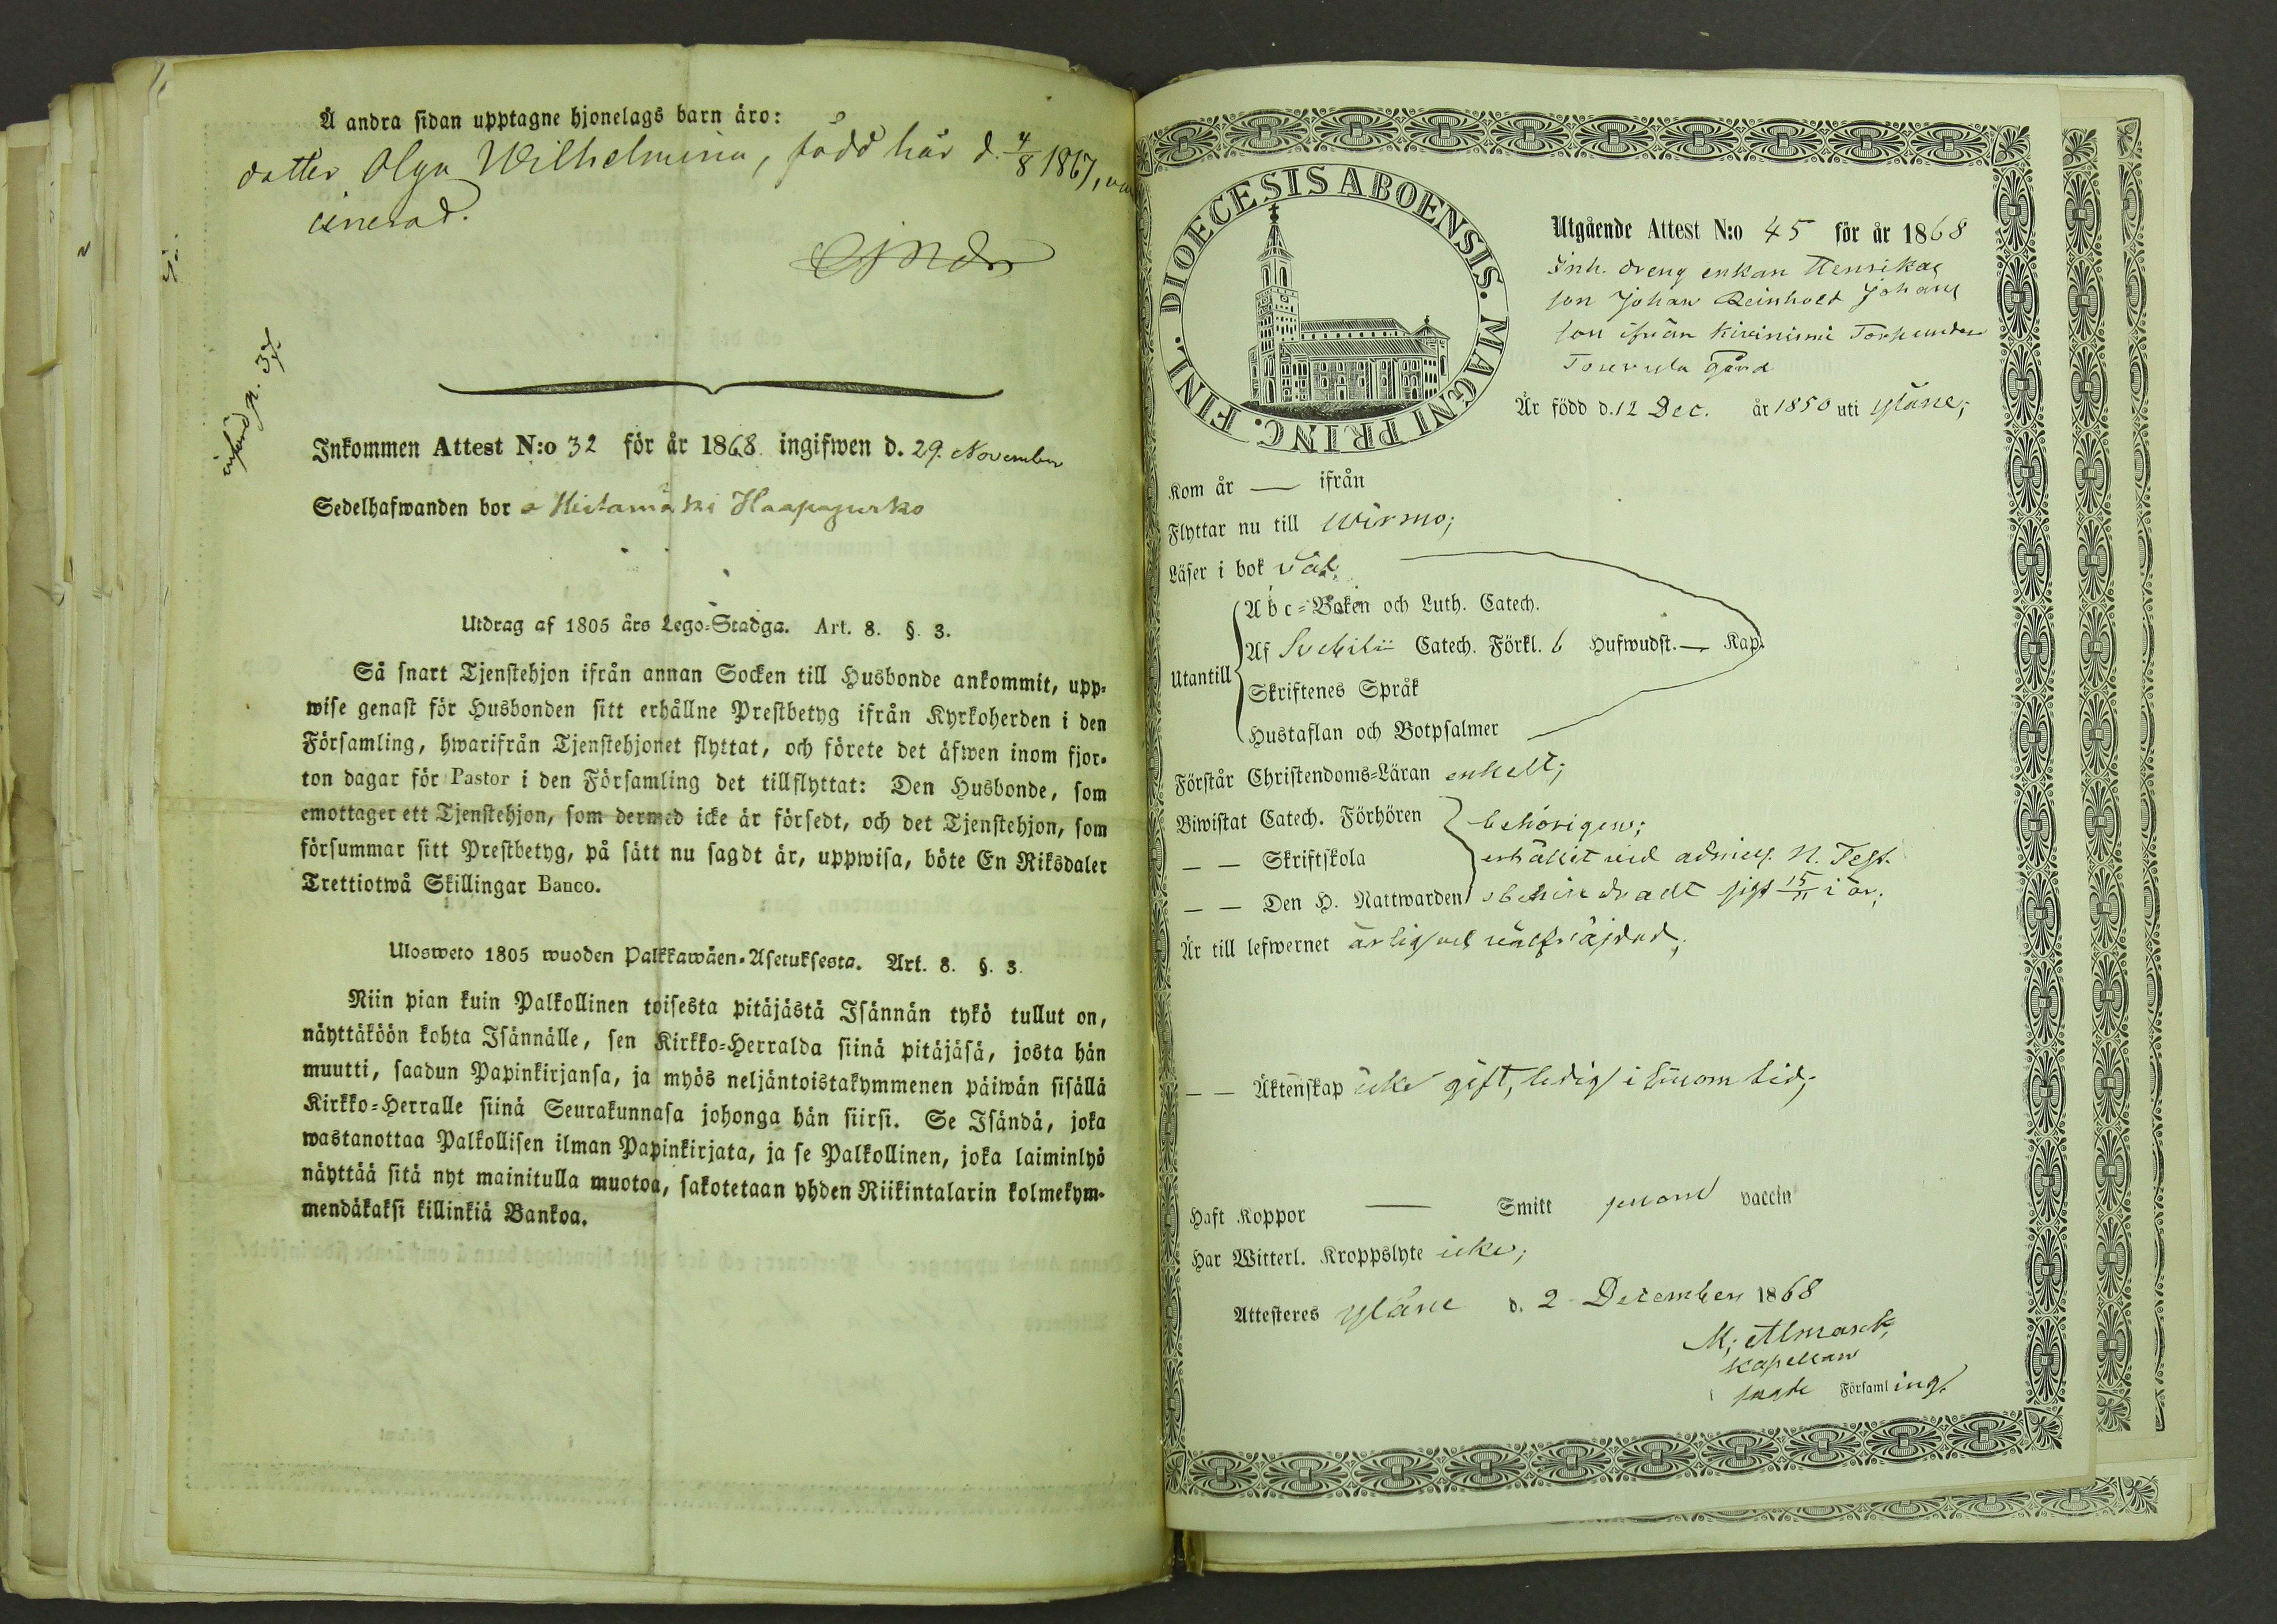 Å andra sidan upptagne hjonelags barn äro:
dotter Olga Wilhelmina, född här d. 4/8 1867, vac
cinerad.
införd p. 37
Inkommen Attest N:o 32 för år 1868. ingifwen d. 29. November
Sedelhafwanden bor å Hiidamäki Haapajurko
Utdrag af 1805 års Lego-Stadga. Art. 8. §. 3.
Så snart Tjenstehjon ifrån annan Socken till Husbonde ankommit, upp-
wise genast för Husbonden sitt erhållne Prestbetyg ifrån Kyrkoherden i den
Församling, hwarifrån Tjenstehjonet flyttat, och förete det äfwen inom fjor-
ton dagar för Pastor i den Församling det tillflyttat: Den Husbonde, som
emottager ett Tjenstehjon, som dermed icke är försedt, och det Tjenstehjon, som
försummar sitt Prestbetyg, på sätt nu sagdt är, uppwisa, böte En Riksdaler
Trettiotwå Skillingar Banco.
Ulosweto 1805 wuoden Palkkawäen-Asetuksesta. Art. 8. §. 3.
Niin pian kuin Palkollinen toisesta pitäjästä Isännän tykö tullut on,
näyttäköön kohta Isännälle, sen Kirkko-Herralda siinä pitäjäsä, josta hän
muutti, saadun Papinkirjansa, ja myös neljäntoistakymmenen päiwän sisällä
Kirkko-Herralle siinä Seurakunnasa johonga hän siirsi. Se Isändä, joka
wastanottaa Palkollisen ilman Papinkirjata, ja se Palkollinen, joka laiminlyö
näyttää sitä nyt mainitulla muotoa, sakotetaan yhden Riikintalarin kolmekym-
mendäkaksi killinkiä Bankoa.
DIOECESIS ABOENSIS. MAGNI PRINC. FINL.
Utgående Attest N:o 45 för år 1868
Inh. dreng enkan Henrikas
son Johan Reinhold Johans
son ifrån Kiviniemi Torp under
Tourula gård
Är född d. 12 Dec. år 1850 uti Yläne;
Kom år — ifrån
Flyttar nu till Wirmo;
Läser i bok väl;
Utantill
Abc-Boken och Luth. Catech.
Af Svebilii Catech. Förkl. 6 Hufwudst. — Kap.
Skriftenes Språk
Hustaflan och Botpsalmer
Förstår Christendoms-Läran enkelt;
Biwistat Catech. Förhören behörigen;
— — Skriftskola erhållit vid admiss. N. Test.
— — Den H. Nattwarden obehindradt sist 15/11 i år;
Är till lefwernet ärlig och välfräjdad;
— — Äktenskap icke gift, ledig i sinom tid;
Haft Koppor — Smitt genom vaccin
Har Witterl. Kroppslyte icke;
Attesteres Yläne d. 2 December 1868
M. Almark,
Kapellan
sagde Församling.